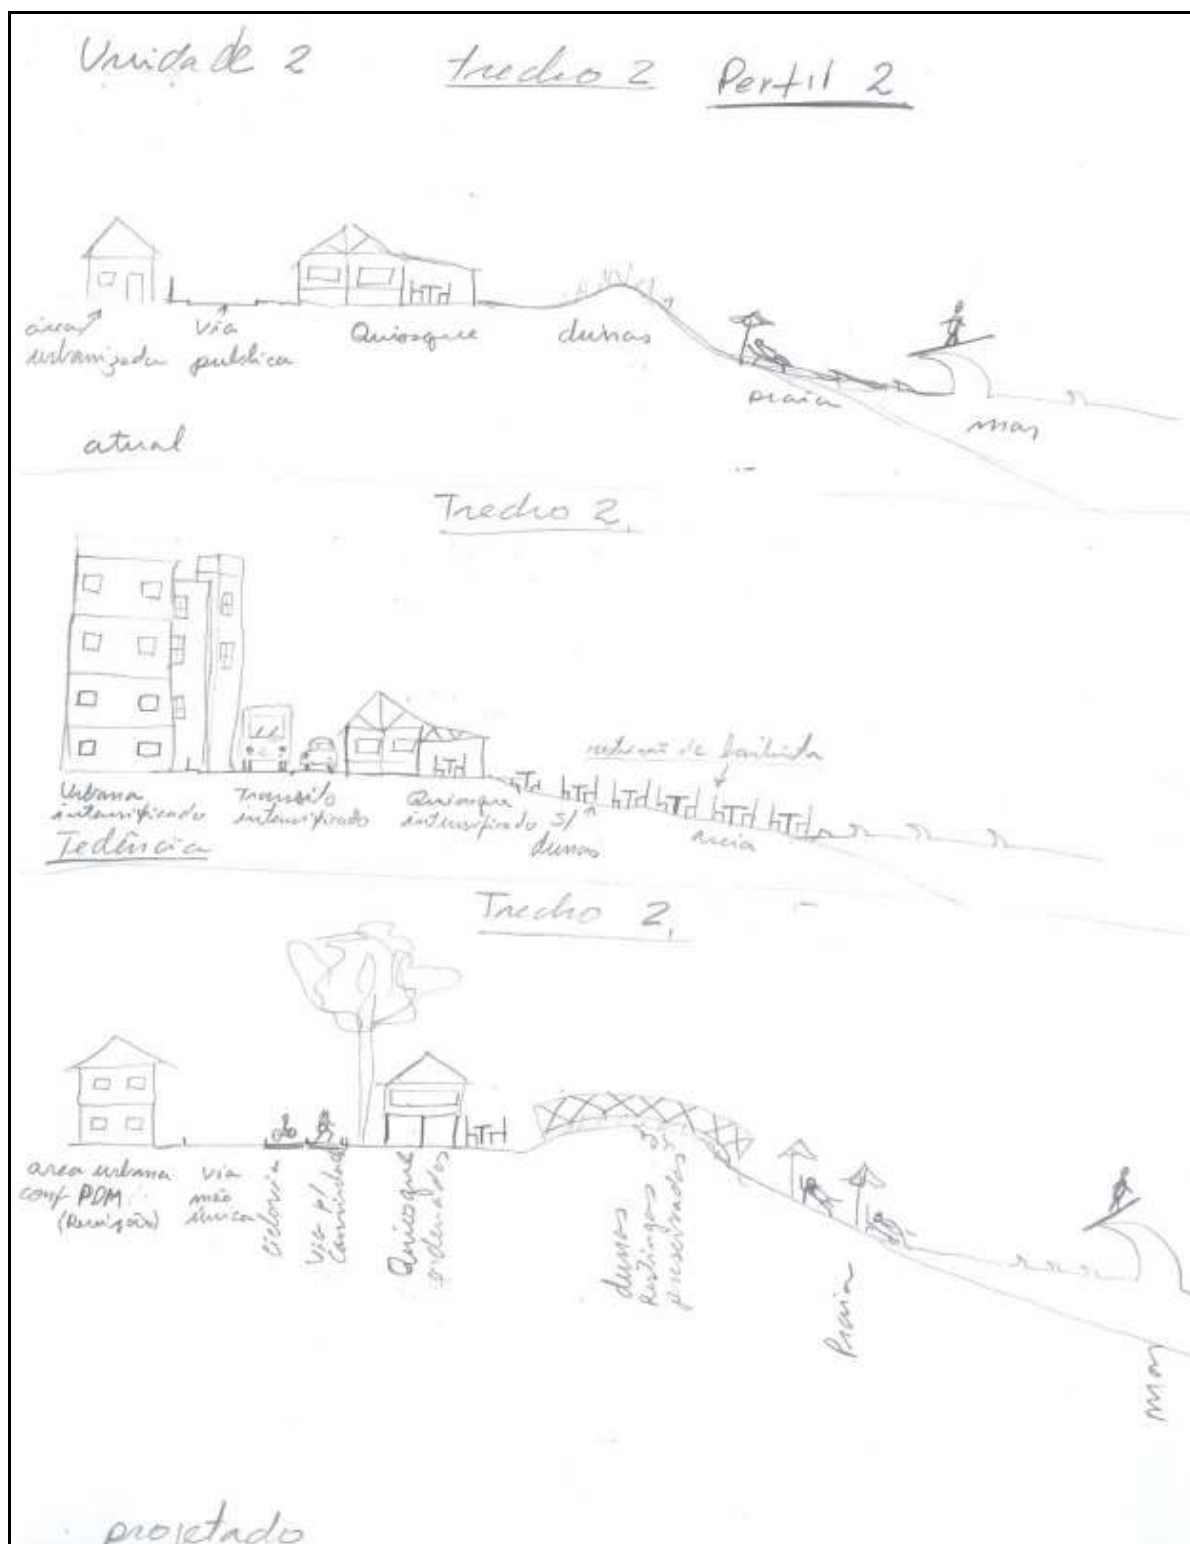 Unidade 2
trecho 2
Perfil 2
área
urbanizada
via
publica
Quiosque
dunas
praia
mar
atual
Trecho 2
de
Urbana
intensificado
Transito
intensificado
Quiosque
intensificado s/
dunas
areia
Tedência
Trecho 2
area urbana
conf PDM
via
mão
única
ciclovia
via p/
caminhada
Quiosque
ordenados
dunas
restingas
preservadas
Praia
mar
projetado